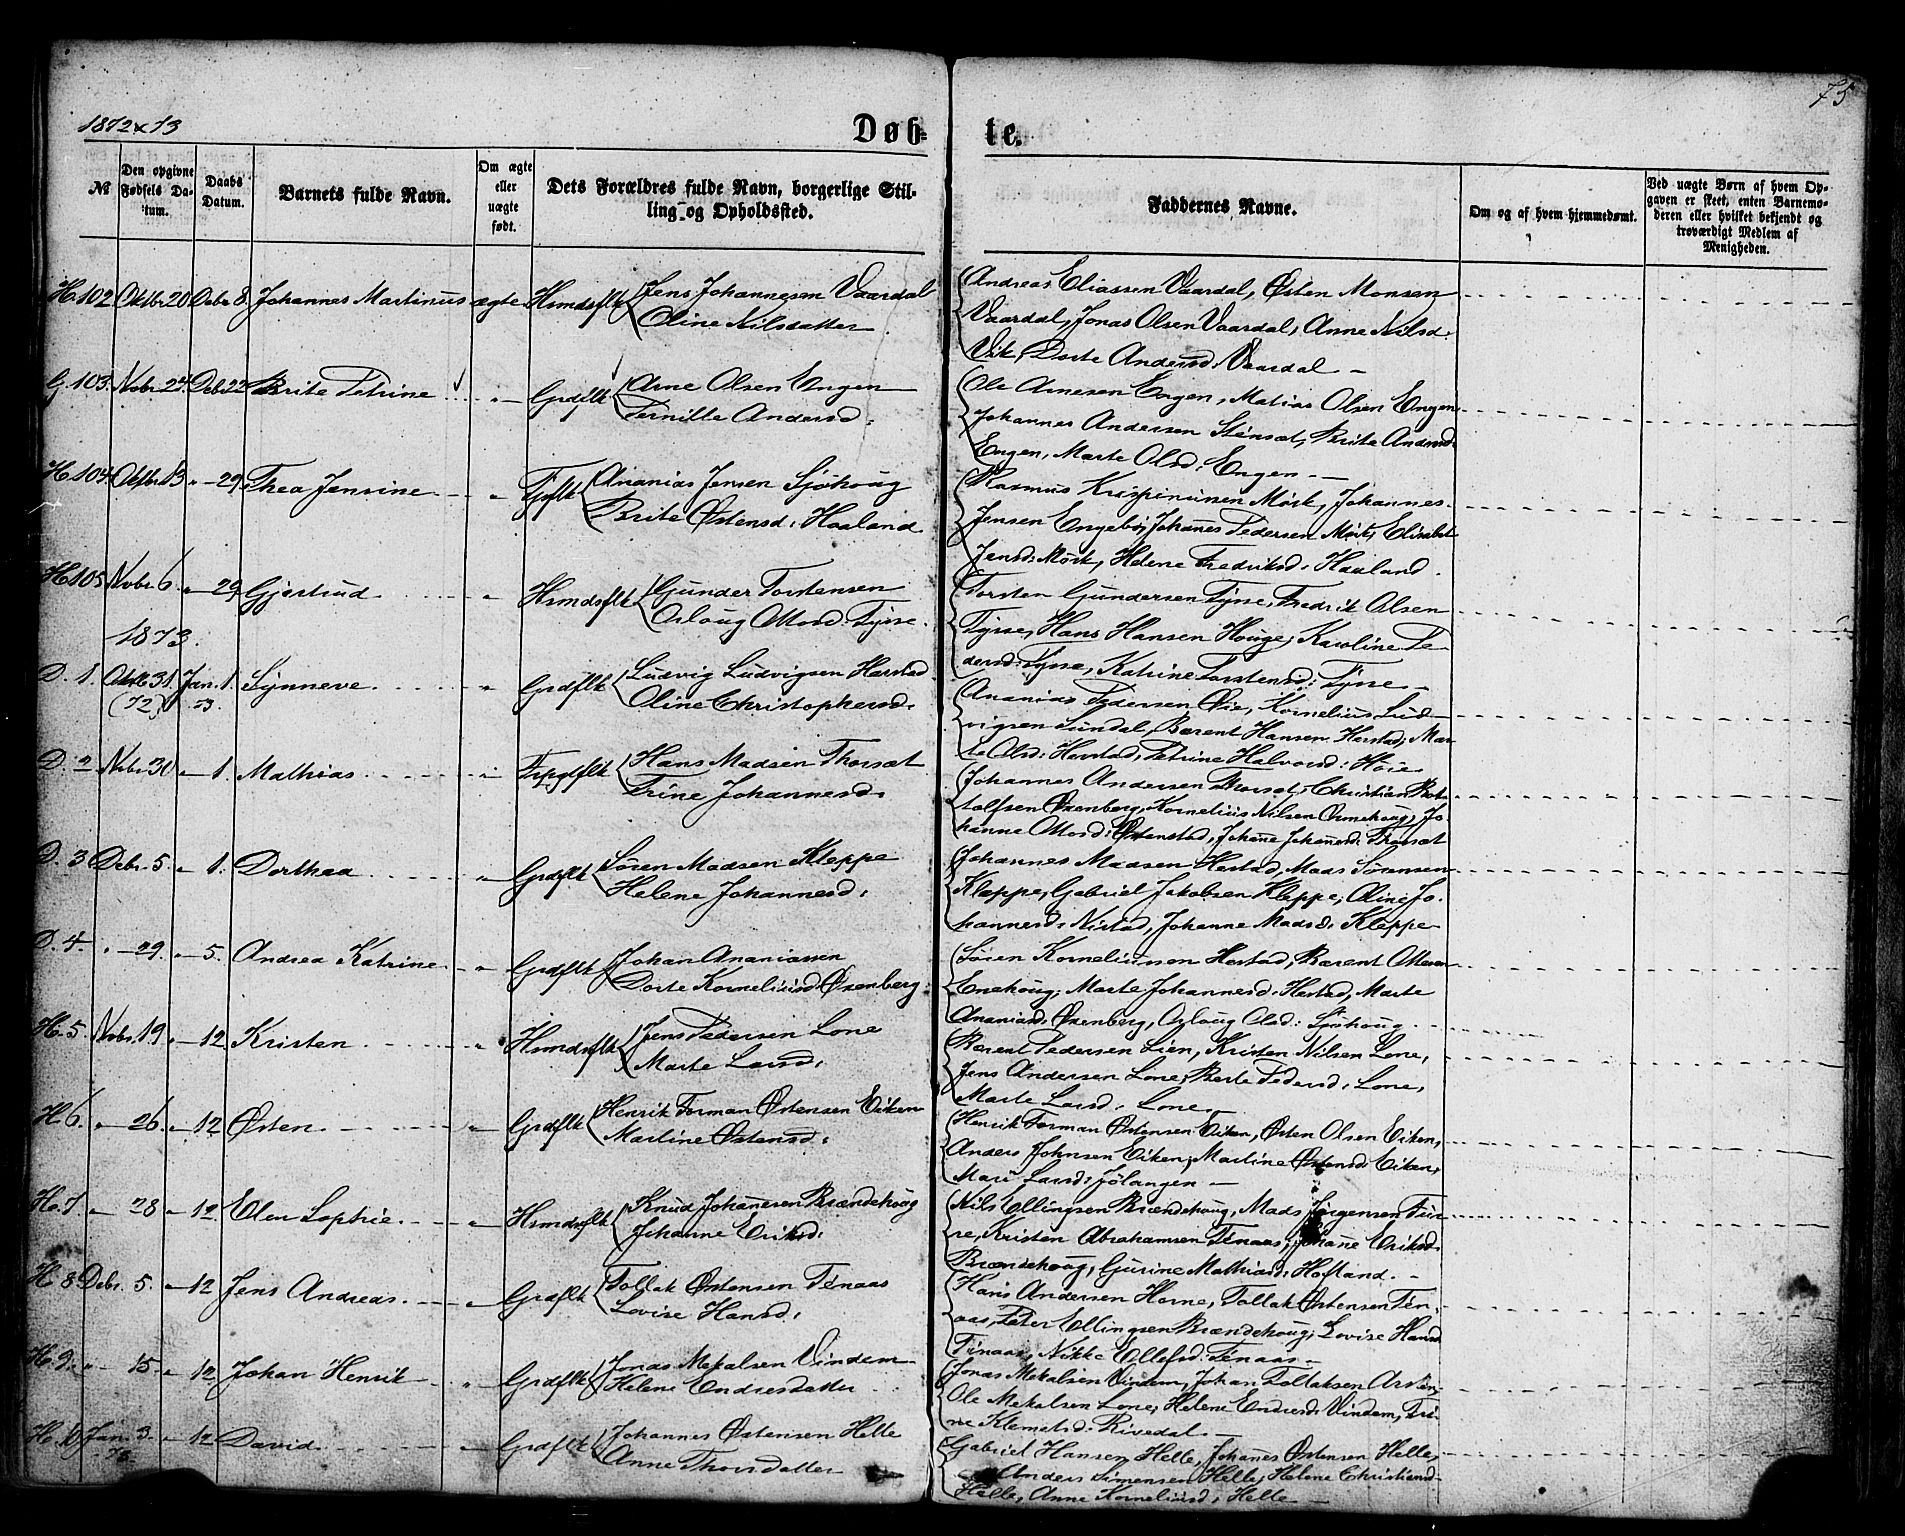 75
1872 & 73
Døb-
te.
№
Den opgivne Fødsels Datum.
Daabs Datum.
Barnets fulde Navn.
Om ægte eller uægte født.
Dets Forældres fulde Navn, borgerlige Stilling og Opholdssted.
Faddernes Navne.
Om og af hvem hjemmedøbt.
Ved uægte Børn af hvem Opgaven er skeet, enten Barnemoderen eller hvilket bekjendt og troværdigt Medlem af Menigheden.
H. 102 Oktbr 20 Debr 8. Johannes Martinus ægte Hsmdsflk Jens Johannesen Vaardal
Oline Nilsdatter
Andreas Eliassen Vaardal, Østen Monsen
Vaardal, Jonas Olsen Vaardal, Anne Nilsd.
Vik, Dorte Andersd: Vaardal —
G. 103. Novbr 24 Deb. 22 Brite Petrine " Grdflk Arne Olsen Engen
Pernille Andersd:
Ole Arnesen Engen, Matias Olsen Engen
Johannes Andersen Stensæt, Brite Andersd
Engen, Marte Olsd: Engen —
H. 104 Oktbr 13 " — 29. Thea Jensine " Ananias Jensen Sjøhoug
Brite Østensd: Haaland
Rasmus Krispinusen Mørk, Johannes
Jensen Engebø, Johannes Pedersen Mørk, Elisabet
Jensd: Mørk, Helene Fredriksd: Haaland.
H. 105 Novbr 6. " — 29 Gjertrud " Hsmdsflk Gunder Torstensen
Osloug Ottosd: Tysse.
Torsten Gundersen Tysse, Fredrik Olsen
Tysse, Hans Hansen Houge, Karoline Pe-
dersd: Tysse, Katrine Torstensd: Tysse —
1873.
D. 1. Oktb. 31 Jan. 1. Synneve " Grdflk Ludvig Ludvigsen Harstad
(72) 73 Oline Christophersd.
Ananias Pedersen Øie, Kornelius Lud-
vigsen Sundal, Bærent Hansen Herstad, Mar-
te Olsd: Herstad, Petrine Halvorsd: Høie
D. 2 Nvbr 30 " — 1. Mathias " Hans Madsen Thorsæt
Trine Johannesd.
Johannes Andersen Thorsæt, Christian Bot-
tolfsen Øxenberg, Kornelius Nilsen Ormehoug, Jo-
hanne Ottosd: Østenstad, Johane Johanesd: Thorsæt
D. 3 Debr. 5 " — 1. Dorthea " Grdflk Søren Madsen Kleppe
Helene Johannesd:
Johannes Madsen Hestad, Mads Sørensen
Kleppe, Gabriel Jakobsen Kleppe, Oline Jo-
hannesd: Nistad, Johanne Madsd: Kleppe
D. 4. " — 29. " — 5. Andrea Katrine " Grdflk Johan Ananiassen
Dorte Korneliusd: Øxenberg
Søren Korneliusson Hestad, Bærent Ottesen
Enehoug; Marte Johannesd: Hestad, Marte
Ananiasd: Øxenberg, Osloug Olsd: Sjøhoug.
H. 5 Novbr. 19 " — 12. Kristen " Hsmdsflk Jens Pedersen Lone
Marte Larsd:
Bærent Pedersen Lien, Kristen Nilsen Lone,
Jens Andersen Lone, Berte Pedersd: Lone,
Marte Larsd: Lone —
H. 6. " — 26. " — 12 Østen " Grdflk Henrik Forman Østensen Eiken
Martine Østensd:
Henrik Forman Østensen Eiken, Østen Olsen Eiken,
Anders Johnsen Eiken, Martine Østensd: Eiken,
Mari Larsd: Jølangen —
H. 7. " — 28 " — 12. Elen Sophie " Hsmdsflk Knud Johanesen Brændehoug
Johanne Eriksd:
Nils Ellingsen Brændehoug, Mads Jørgensen Fur-
re, Kristen Abrahamsen Tenaas, Johane Eriksd:
Brændehoug, Gurine Mathiasd: Hofland. —
H. 8 Debr. 5. " — 12 Jens Andreas " Grdflk Tollak Østensen Tenaas
Lovise Hansd:
Hans Andersen Horne, Tollak Østensen Ten-
aas, Peter Ellingsen Brændehoug, Lovise Hansd
Tenaas, Nikke Ellefsd: Tenaas —
H. 9. " — 15 " — 12. Johan Henrik " Grdflk Jonas Mekalsen Vindem
Helene Endresdatter
Jonas Mekalsen Vindem, Johan Tollaksen
Ole Mekalsen Lone, Helene Endresd: Vindem, Tri-
ne Klemetsd: Rivedal
H. 10 Jan. 3. " — 12 David " Grdflk Johannes Østensen Helle
73. Anne Thorsdatter
Gabriel Hansen Helle, Johanes Østensen Helle,
Anders Simensen Helle, Helene Christiansd
Helle, Anne Korneliusd: Helle —